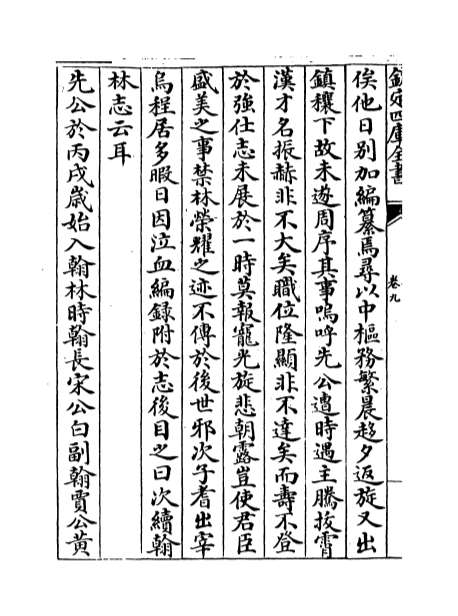 欽定四庫全書
卷九
俟他日別加編纂焉尋以中樞務繁晨趍夕返旋又出
鎮穰下故未遑周序其事嗚呼先公遭時遇主騰拔霄
漢才名振赫非不大矣職位隆顯非不達矣而壽不登
於強仕志未展於一時莫報寵光旋悲朝露豈使君臣
盛美之事禁林榮耀之迹不傳於後世邪次子耆出宰
烏程居多暇日因泣血編録附於志後目之曰次續翰
林志云耳
先公於丙戌歲始入翰林時翰長宋公白副翰賈公黃